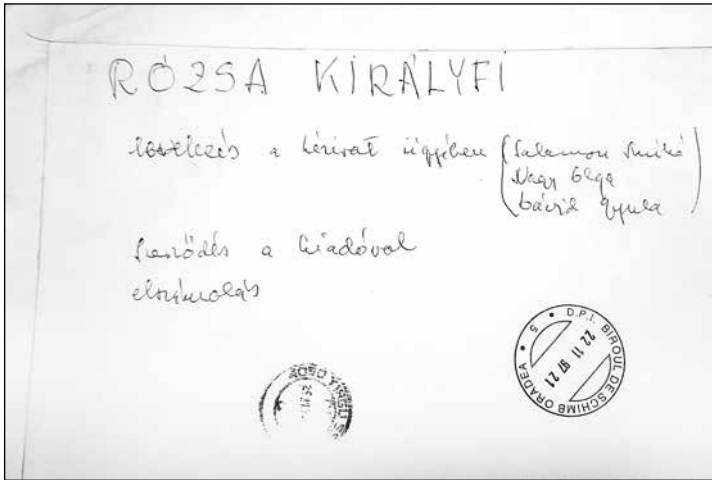 RÓZSA KIRÁLYFI
levelezés a kézirat ügyében (Salamon Anikó
Nagy Olga
Dávid Gyula)
Szerződés a kiadóval
elszámolás
D.P.I. BIROUL DE SCHIMB ORADEA 5
22 11 97 21